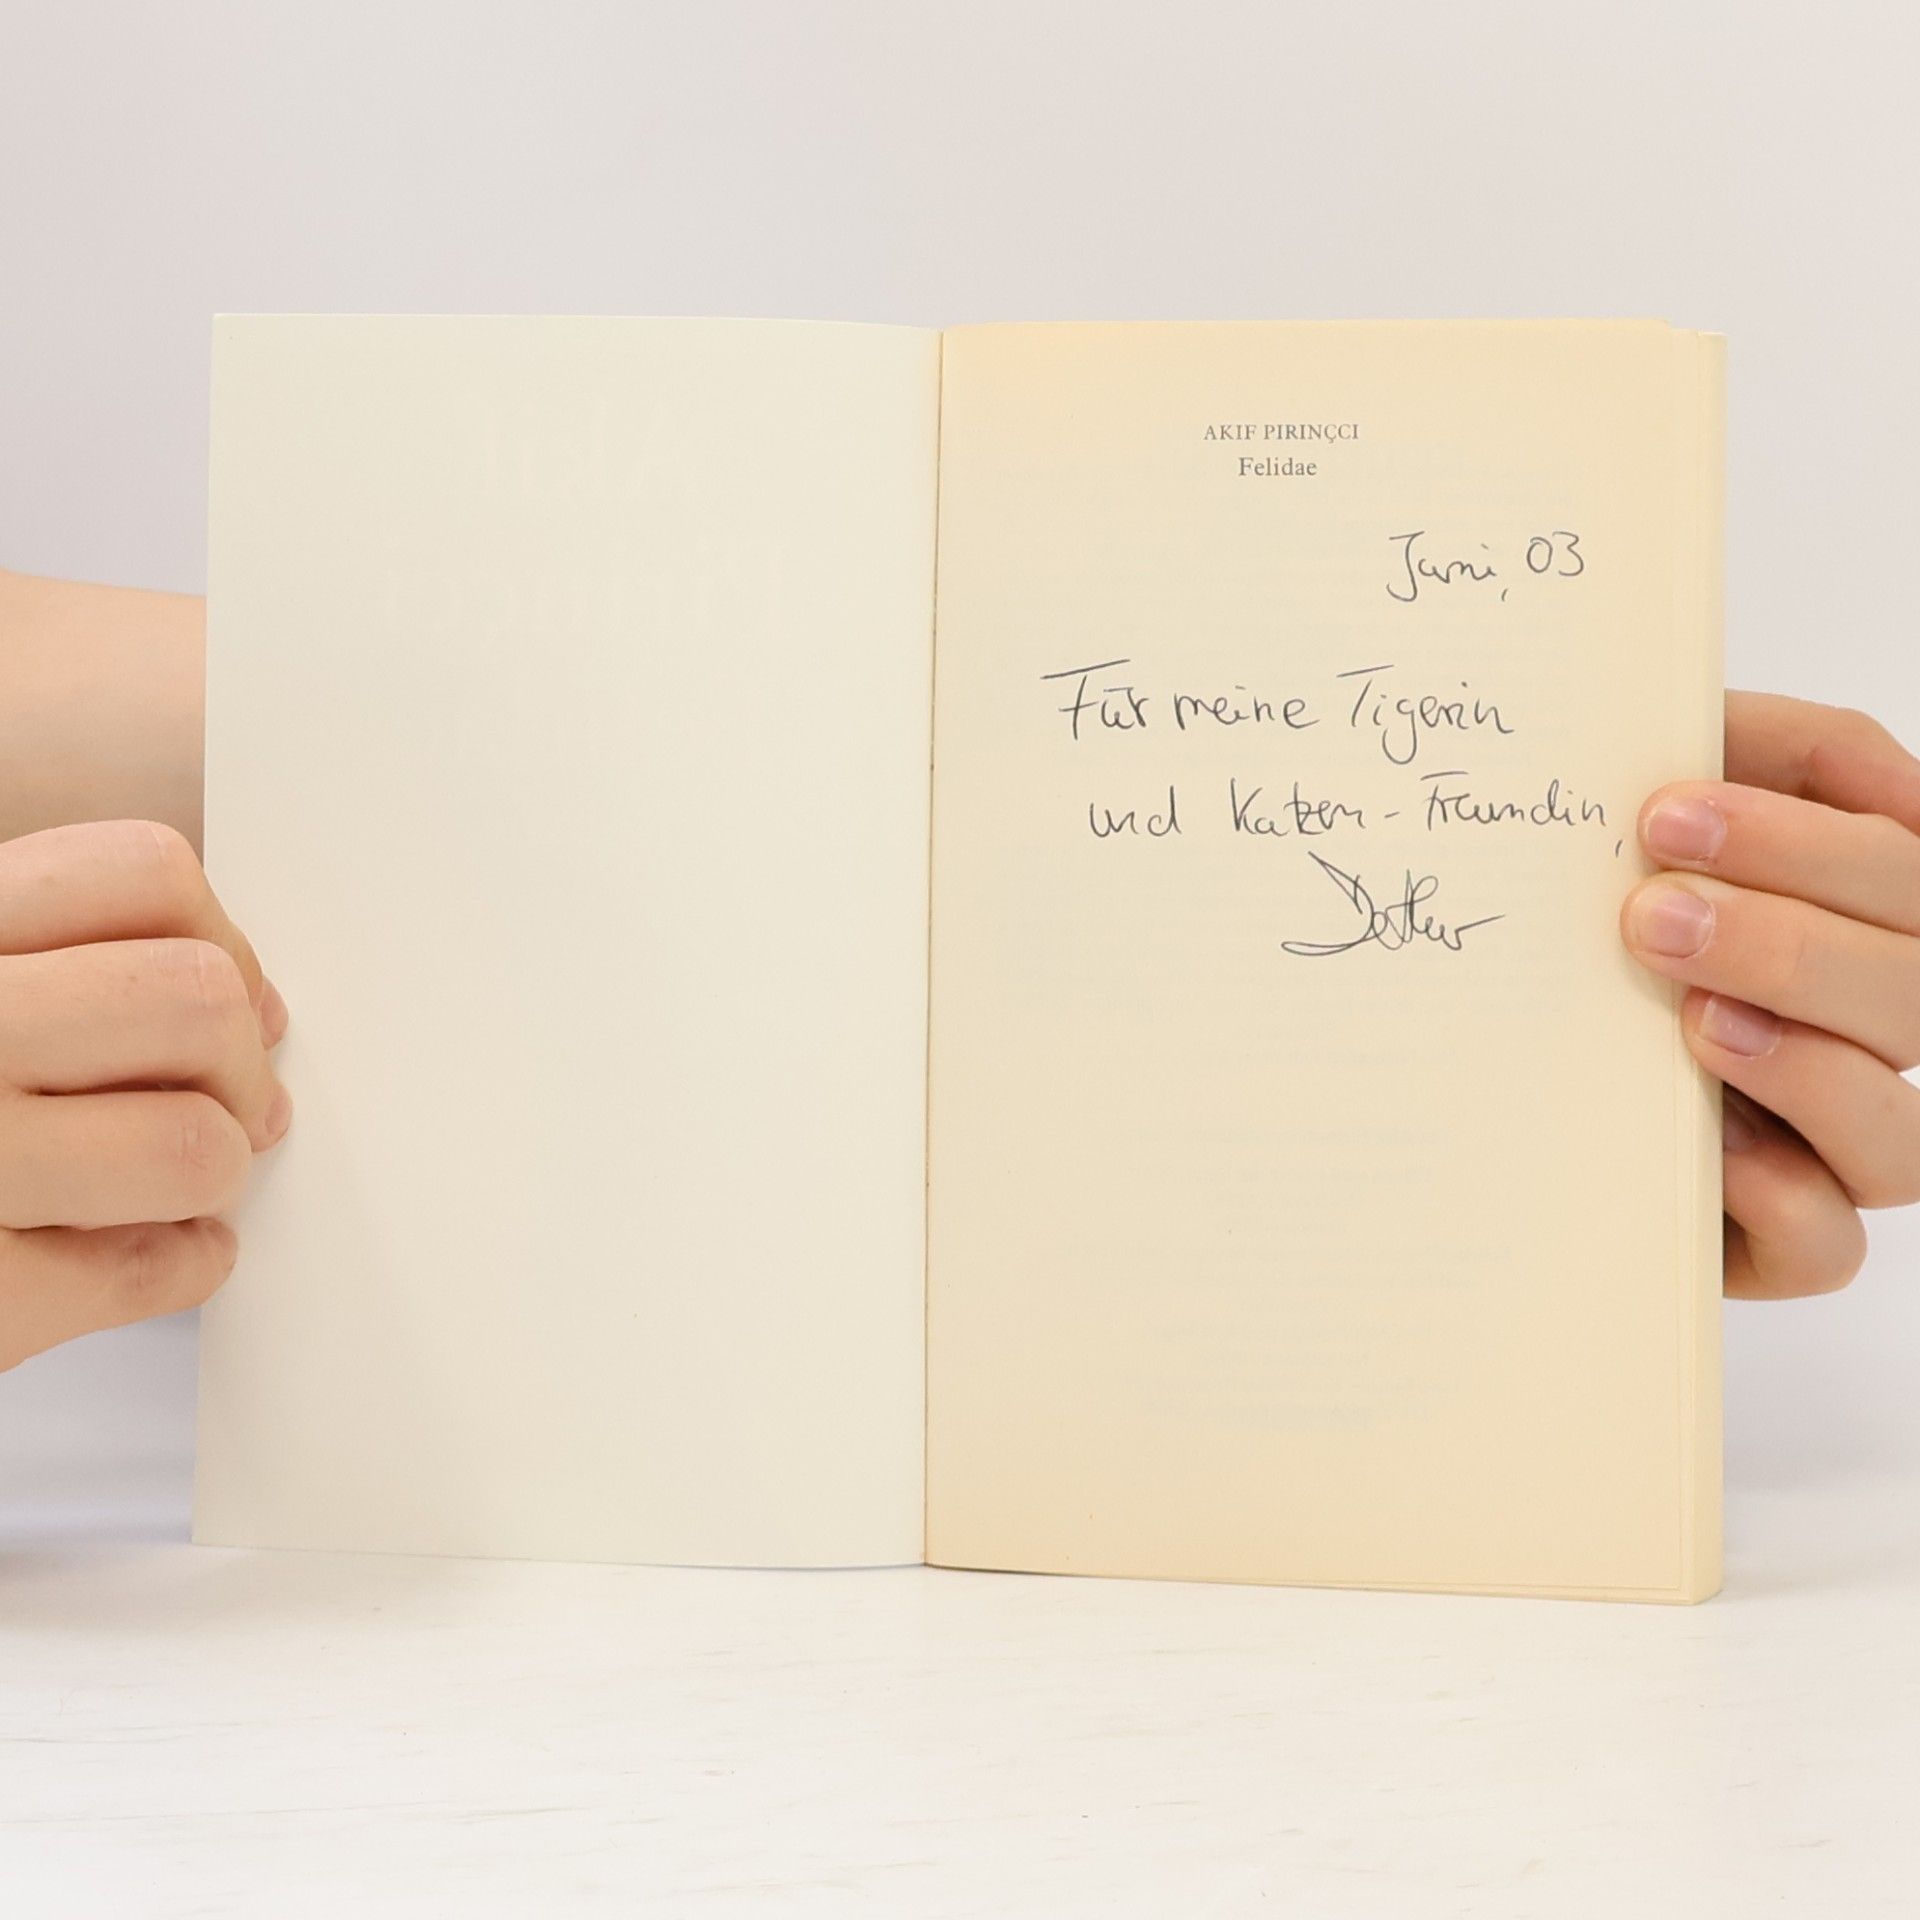 AKIF PIRINÇCI
Felidae
Juni, 03
Für meine Tigerin
und Katzen-Freundin,
Detlev